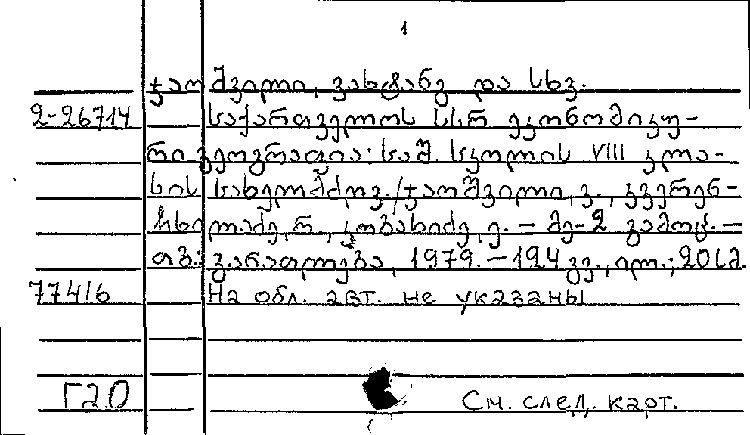 1
ჯაოშვილი, ვახტანგ და სხვ.
2-26714 საქართველოს სსრ ეკონომიკუ-
რი გეოგრაფია: საშ. სკოლის VIII კლა-
სის სახელმძღვ. / ჯაოშვილი, ვ., კვერენ-
ჩხილაძე, რ., კობახიძე, ე. – მე-2 გამოც. –
თბ.: განათლება, 1979. – 124 გვ., ილ.; 20 სმ.
77416 На обл. авт. не указаны
Г20 См. след. карт.